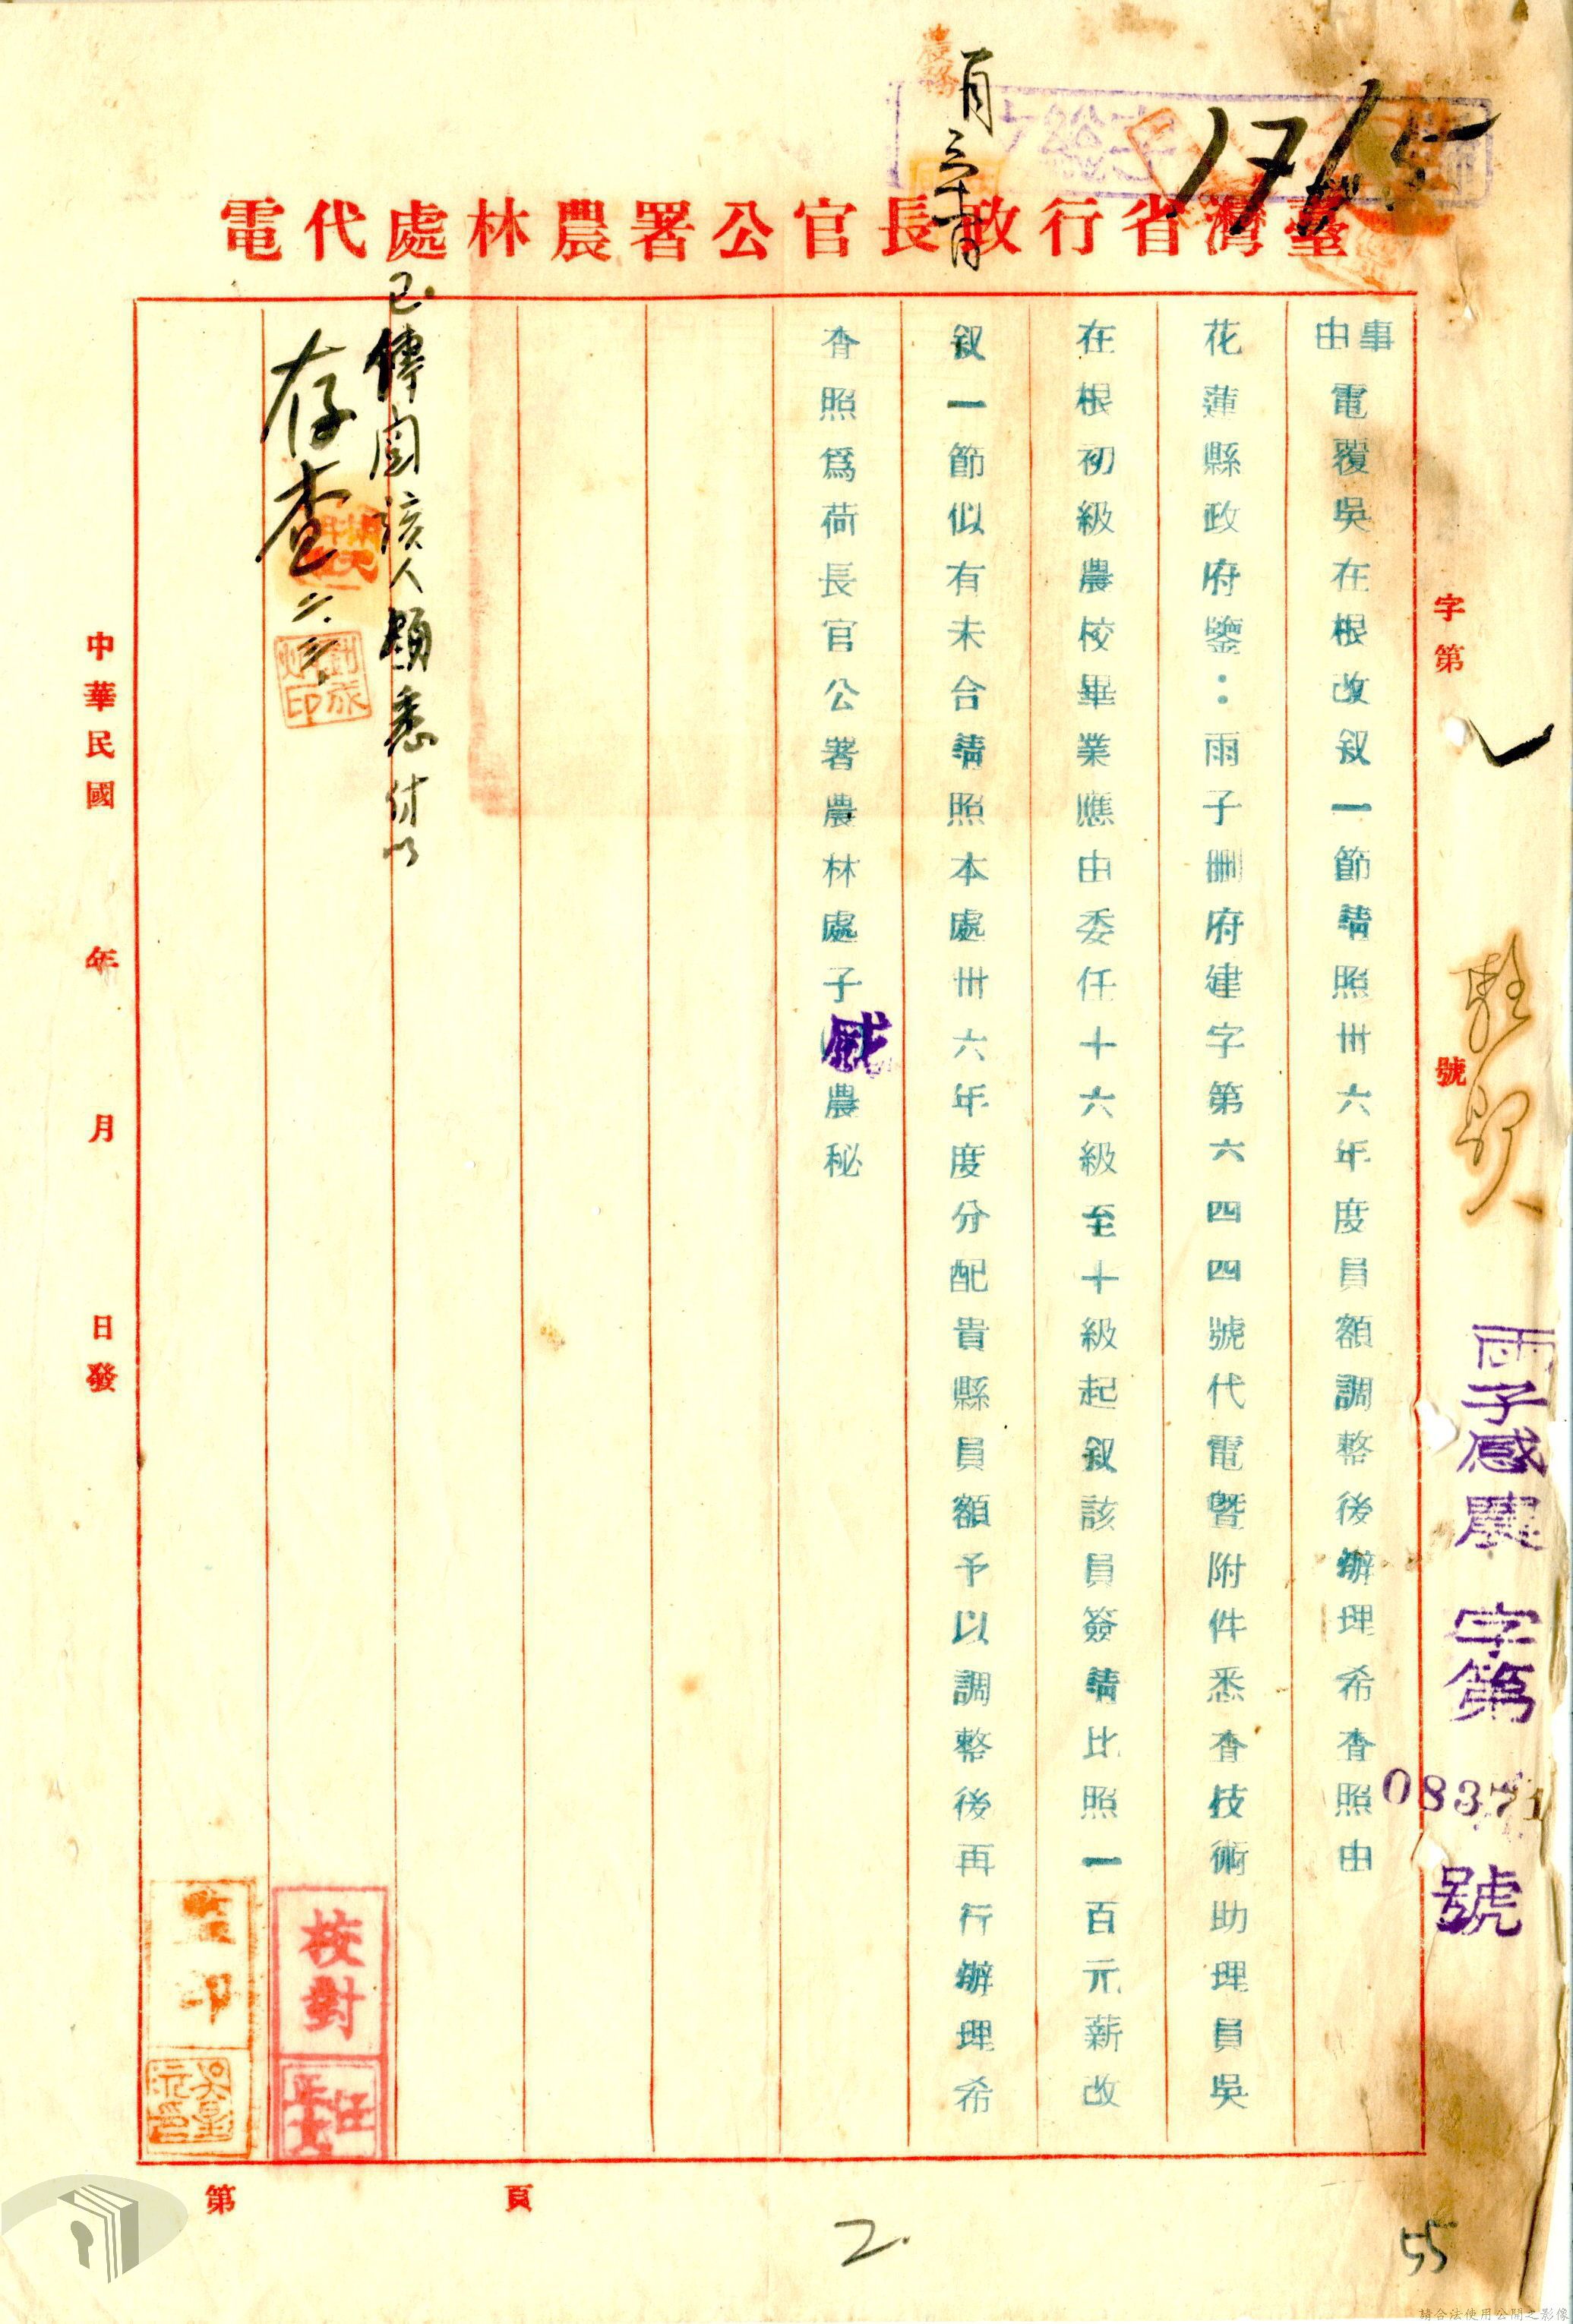 1715
臺灣省行政長官公署農林處代電
字第 號
雨子感農 字第 08371 號
事由 電覆吳在根改叙一節請照卅六年度員額調整後辦理希查照由
花蓮縣政府鑒：雨子刪府建字第六四四號代電曁附件悉查技術助理員吳
在根初級農校畢業應由委任十六級至十級起叙該員簽請比照一百元薪改
叙一節似有未合請照本處卅六年度分配貴縣員額予以調整後再行辦理希
查照爲荷長官公署農林處子感農秘
存查
校對
監印
中華民國 年 月 日發
第 頁
2.
55
請合法使用公開之影像